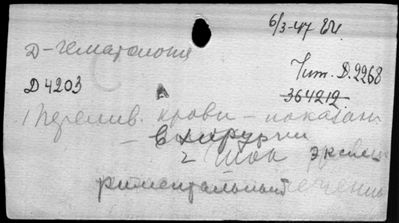 6/3-47
Д-гематология
Д 4203
Чит. Д. 2968
364212
А
1 Перелив. крови - показан
- в хирургии
2 Шок экспе
риментальный
лечение